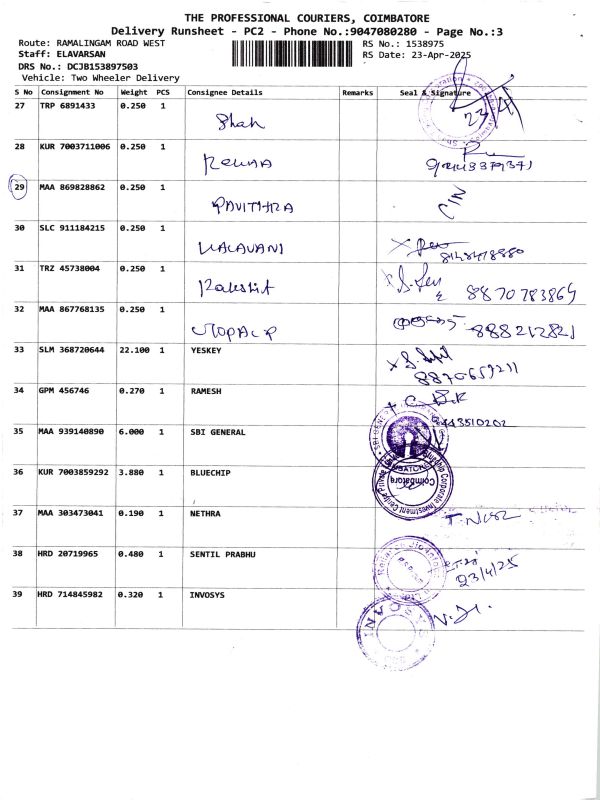 THE PROFESSIONAL COURIERS, COIMBATORE
Delivery Runsheet - PC2 - Phone No.:9047080280 - Page No.:3
Route: RAMALINGAM ROAD WEST
RS No.: 1538975
Staff: ELAVARSAN
RS Date: 23-Apr-2025
DRS No.: DCJB153897503
Vehicle: Two Wheeler Delivery
S No Consignment No Weight PCS Consignee Details Remarks Seal & Signature
27 TRP 6891433 0.250 1
Shah
23/4
28 KUR 7003711006 0.250 1
29 MAA 869828862 0.250 1
PAVITHRA
30 SLC 911184215 0.250 1
KALAVANI
31 TRZ 45738004 0.250 1
Rakshit
8870783869
32 MAA 867768135 0.250 1
33 SLM 368720644 22.100 1 YESKEY
8870659211
34 GPM 456746 0.270 1 RAMESH
35 MAA 939140890 6.000 1 SBI GENERAL
36 KUR 7003859292 3.880 1 BLUECHIP
Bluechip Corporate Investment Centre Private
Coimbatore
37 MAA 303473041 0.190 1 NETHRA
38 HRD 20719965 0.480 1 SENTIL PRABHU
23/4/25
39 HRD 714845982 0.320 1 INVOSYS
INVOSYS